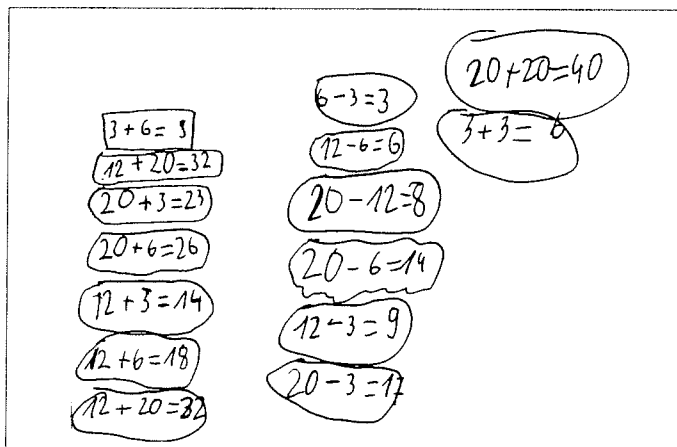 3+6=9
12+20=32
20+3=23
20+6=26
12+3=14
12+6=18
12+20=32
6-3=3
12-6=6
20-12=8
20-6=14
12-3=9
20-3=17
20+20=40
3+3=6